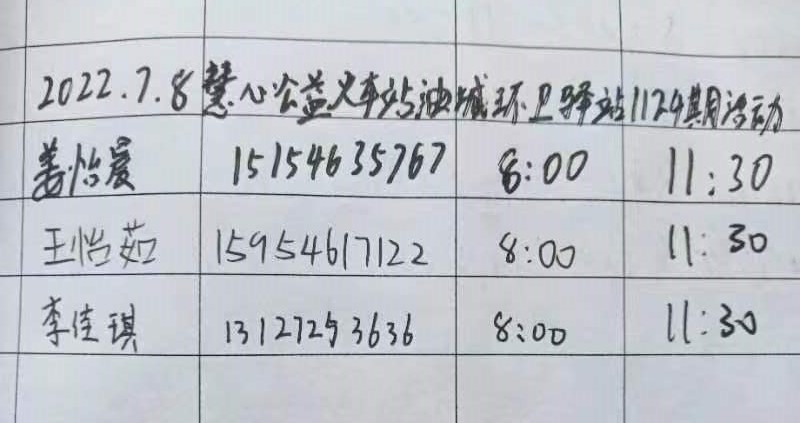 2022.7.8 慧心公益火车站油城环卫驿站1124期活动
姜怡晨 15154635767 8:00 11:30
王怡茹 15954617122 8:00 11:30
李佳琪 13127293636 8:00 11:30